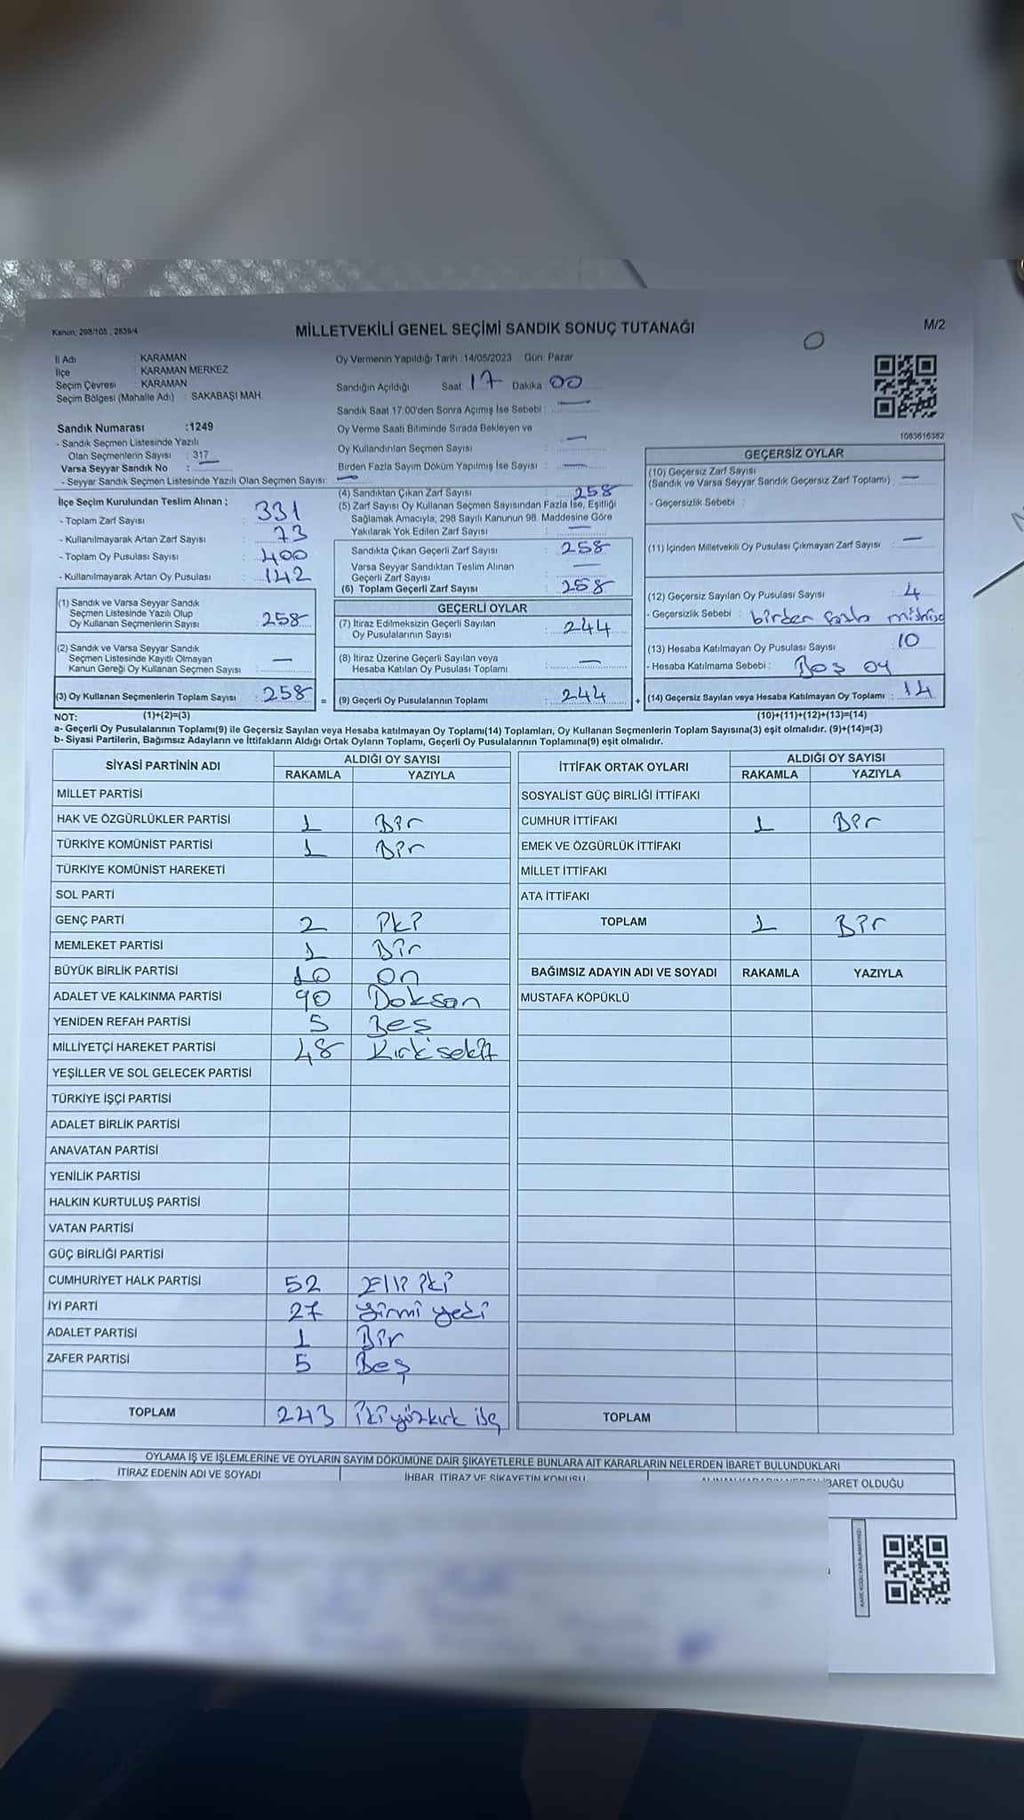 Kanun, 298/105 , 2839/4
MİLLETVEKİLİ GENEL SEÇİMİ SANDIK SONUÇ TUTANAĞI
M/2
İl Adı : KARAMAN
İlçe : KARAMAN MERKEZ
Seçim Çevresi : KARAMAN
Seçim Bölgesi (Mahalle Adı) : SAKABAŞI MAH.
Sandık Numarası :1249
- Sandık Seçmen Listesinde Yazılı
Olan Seçmenlerin Sayısı : 317
Varsa Seyyar Sandık No : —
- Seyyar Sandık Seçmen Listesinde Yazılı Olan Seçmen Sayısı: —
Oy Vermenin Yapıldığı Tarih :14/05/2023 Gün: Pazar
Sandığın Açıldığı Saat 17 Dakika 00
Sandık Saat 17:00'den Sonra Açımış İse Sebebi : —
Oy Verme Saati Bitiminde Sırada Bekleyen ve
Oy Kullandırılan Seçmen Sayısı : —
Birden Fazla Sayım Döküm Yapılmış İse Sayısı : —
1083616382
İlçe Seçim Kurulundan Teslim Alınan ;
- Toplam Zarf Sayısı : 331
- Kullanılmayarak Artan Zarf Sayısı : 73
- Toplam Oy Pusulası Sayısı : 400
- Kullanılmayarak Artan Oy Pusulası : 142
(1) Sandık ve Varsa Seyyar Sandık
Seçmen Listesinde Yazılı Olup
Oy Kullanan Seçmenlerin Sayısı : 258
(2) Sandık ve Varsa Seyyar Sandık
Seçmen Listesinde Kayıtlı Olmayan
Kanun Gereği Oy Kullanan Seçmen Sayısı : —
(3) Oy Kullanan Seçmenlerin Toplam Sayısı : 258 =
(4) Sandıktan Çıkan Zarf Sayısı : 258
(5) Zarf Sayısı Oy Kullanan Seçmen Sayısından Fazla İse, Eşitliği
Sağlamak Amacıyla, 298 Sayılı Kanunun 98. Maddesine Göre
Yakılarak Yok Edilen Zarf Sayısı : —
Sandıkta Çıkan Geçerli Zarf Sayısı : 258
Varsa Seyyar Sandıktan Teslim Alınan
Geçerli Zarf Sayısı : —
(6) Toplam Geçerli Zarf Sayısı : 258
GEÇERLİ OYLAR
(7) İtiraz Edilmeksizin Geçerli Sayılan
Oy Pusulalarının Sayısı : 244
(8) İtiraz Üzerine Geçerli Sayılan veya
Hesaba Katılan Oy Pusulası Toplamı : —
(9) Geçerli Oy Pusulalarının Toplamı : 244 +
GEÇERSİZ OYLAR
(10) Geçersiz Zarf Sayısı
(Sandık ve Varsa Seyyar Sandık Geçersiz Zarf Toplamı) : —
- Geçersizlik Sebebi :
(11) İçinden Milletvekili Oy Pusulası Çıkmayan Zarf Sayısı : —
(12) Geçersiz Sayılan Oy Pusulası Sayısı : 4
- Geçersizlik Sebebi : birden fazla
(13) Hesaba Katılmayan Oy Pusulası Sayısı : 10
- Hesaba Katılmama Sebebi : Boş oy
(14) Geçersiz Sayılan veya Hesaba Katılmayan Oy Toplamı : 14
NOT: (1)+(2)=(3) (10)+(11)+(12)+(13)=(14)
a- Geçerli Oy Pusulalarının Toplamı(9) ile Geçersiz Sayılan veya Hesaba katılmayan Oy Toplamı(14) Toplamları, Oy Kullanan Seçmenlerin Toplam Sayısına(3) eşit olmalıdır. (9)+(14)=(3)
b- Siyasi Partilerin, Bağımsız Adayların ve İttifakların Aldığı Ortak Oyların Toplamı, Geçerli Oy Pusulalarının Toplamına(9) eşit olmalıdır.
SİYASİ PARTİNİN ADI ALDIĞI OY SAYISI
RAKAMLA YAZIYLA
MİLLET PARTİSİ
HAK VE ÖZGÜRLÜKLER PARTİSİ 1 Bir
TÜRKİYE KOMÜNİST PARTİSİ 1 Bir
TÜRKİYE KOMÜNİST HAREKETİ
SOL PARTİ
GENÇ PARTİ 2 İki
MEMLEKET PARTİSİ 1 Bir
BÜYÜK BİRLİK PARTİSİ 10 on
ADALET VE KALKINMA PARTİSİ 90 Doksan
YENİDEN REFAH PARTİSİ 5 Beş
MİLLİYETÇİ HAREKET PARTİSİ 48 Kırk sekiz
YEŞİLLER VE SOL GELECEK PARTİSİ
TÜRKİYE İŞÇİ PARTİSİ
ADALET BİRLİK PARTİSİ
ANAVATAN PARTİSİ
YENİLİK PARTİSİ
HALKIN KURTULUŞ PARTİSİ
VATAN PARTİSİ
GÜÇ BİRLİĞİ PARTİSİ
CUMHURİYET HALK PARTİSİ 52 Elli iki
İYİ PARTİ 27 yirmi yedi
ADALET PARTİSİ 1 Bir
ZAFER PARTİSİ 5 Beş
TOPLAM 243 ikiyüzkırk üç
İTTİFAK ORTAK OYLARI ALDIĞI OY SAYISI
RAKAMLA YAZIYLA
SOSYALİST GÜÇ BİRLİĞİ İTTİFAKI
CUMHUR İTTİFAKI 1 Bir
EMEK VE ÖZGÜRLÜK İTTİFAKI
MİLLET İTTİFAKI
ATA İTTİFAKI
TOPLAM 1 Bir
BAĞIMSIZ ADAYIN ADI VE SOYADI RAKAMLA YAZIYLA
MUSTAFA KÖPÜKLÜ
TOPLAM
OYLAMA İŞ VE İŞLEMLERİNE VE OYLARIN SAYIM DÖKÜMÜNE DAİR ŞİKAYETLERLE BUNLARA AİT KARARLARIN NELERDEN İBARET BULUNDUKLARI
İTİRAZ EDENİN ADI VE SOYADI
İHBAR, İTİRAZ VE ŞİKAYETİN KONUSU
İBARET OLDUĞU